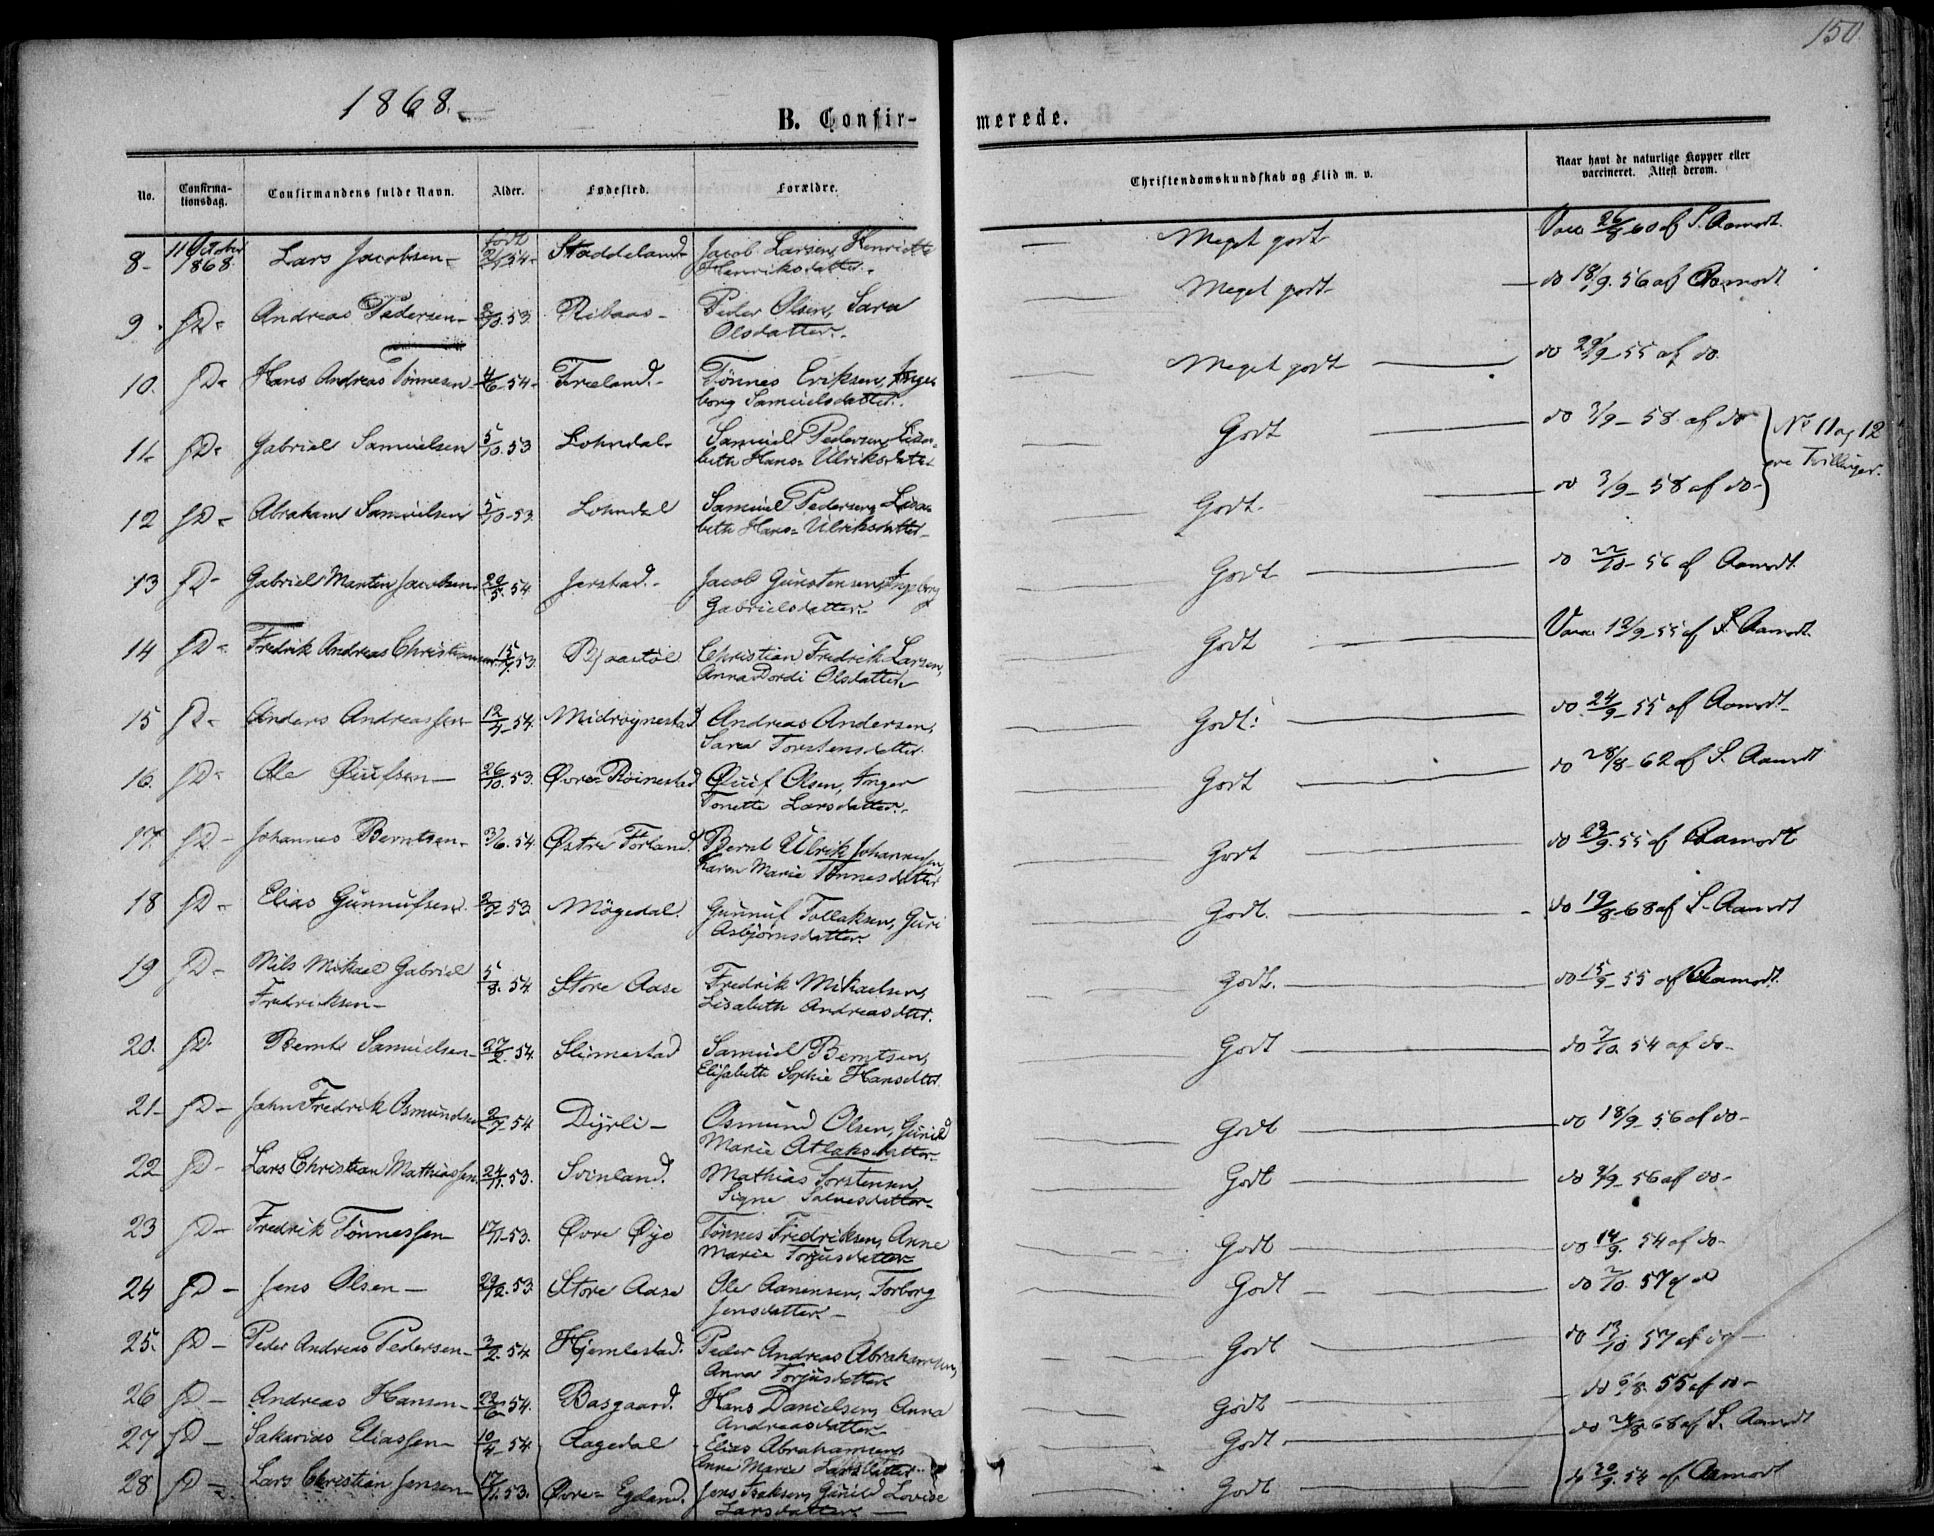 150.
1868.
B. Confir-
merede.
No.
Confirma-
tionsdag.
Confirmandens fulde Navn.
Alder.
Fødested.
Forældre.
Christendomskundskab og Flid m. v.
Naar havt de naturlige Kopper eller
vaccineret. Attest derom.
8- 11 October født Jacob Larsen, Henriette
1868. Lars Jacobsen- 54- Staddeland- Henriksdatter.- Meget godt Vacc 26/8 60 af S. Aamodt.
9. D- Andreas Pedersen- 53. Ribaas- Peder Olsen, Sara Meget godt do 18/9. 56 af Aamodt
Olsdatter.
10. D- Hans Andreas Tønnesen 4/6-54- Freeland.- Tønnes Eriksen, Inge Meget godt do 29/9-55 af do.
borg Samuelsdatter.
11. D- Gabriel Samuelsen 5/10 53 Lohndal- Samuel Pedersen, Lisa- Godt do 3/9-58 af do No 11 og 12
beth Hans= Ulriksdatter ere Tvillinger.
12 D- Abraham Samuelsen 5/10-53. Lohndal Samuel Pedersen, Lisa- Godt- do 3/9-58 af do-
beth Hans= Ulriksdatter-
13 D- Gabriel Marten Jacobsen 54. Jerstad.- Jacob Gunstensen, Ingeborg Godt do 22/10-56 af Aamodt.
Gabrielsdatter-
14 D- Fredrik Andreas Christiansen 53. Bjaastøl Christian Fredrik Larsen, Godt Vacc 12/9-55 af S. Aamodt.
Anna Dordi Olsdatter.
15 D- Anders Andreassen- 54. Midrøynestad. Andreas Andersen, Godt. do. 24/9-55 af Aamodt-
Sara Torstensdatter.
16. D- Ole Øuufsen- 26/10.53. Øvre Røinestad. Øuuf Olsen, Inger Godt do 28/8-62 af S. Aamodt
Tonette Larsdatter.-
17. D- Johannes Berntsen- 3/6.54. Østre Førland. Bernt Ulrik Johannesen, Godt do 23/9.55 af Aamodt
Karen Marie Tønnesdatter
18 D- Elias Gunnufsen. 53. Møgedal. Gunnuf Tollaksen, Guri Godt. do 19/8-68 af S. Aamodt
Asbjørnsdatter.
19 D- Nils Mikael Gabriel 5/8.54 Store Aase Fredrik Mikaelsen, Godt. do 15/9-55 af Aamodt.
Fredriksen- Lisabeth Andreasdttr.
20. D Bernt Samuelsen- 27/2.54. Slimestad Samuel Berntsen, Godt do 7/10.54 af do-
Elisabeth Sophie Hansdttr.
21- D- John Fredrik Osmundsen 54 Dyrli- Osmund Olsen, Gunild Godt do 18/9-56 af do-
Marie Atlaksdatter-
22 D- Lars Christian Mathiassen 24/11.53. Svinland. Mathias Torstensen, Godt do 56 af do-
Signe Salvesdatter-
23 D- Fredrik Tønnessen- 17/11-53. Øvre Øye Tønnes Fredriksen, Anne Godt do 14/9. 54 af do-
Marie Torjusdatter
24 D- Jens Olsen- 53. Store Aase Ole Aanensen, Torborg Godt do 57
Jensdatter.-
25. D- Peder Andreas Pedersen- 3/2.54. Hjemlestad. Peder Andreas Abrahamsen, Godt do 13/10 57 af do-
Anna Torjusdatter
26 D- Andreas Hansen- 22/6 54. Basgaard. Hans Danielsen, Anna Godt do 6/8. 55 af do-
Andreasdatter
27 D- Sakarias Eliassen- 10/4-54. Aagedal Elias Abrahamsen, Godt do 68 af S. Aamodt
Anne Marie Larsdatter.
28 D- Lars Christian Jensen- 17/11.53. Øvre= Egeland. Jens Isaksen, Gunild Lovise Godt do 54 af Aamodt
Larsdatter.-